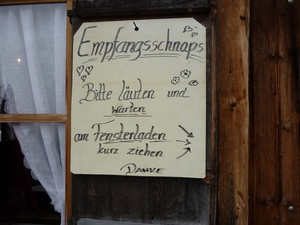 Empfangsschnaps
Bitte läuten und
warten
am Fensterladen
kurz ziehen
DANKE